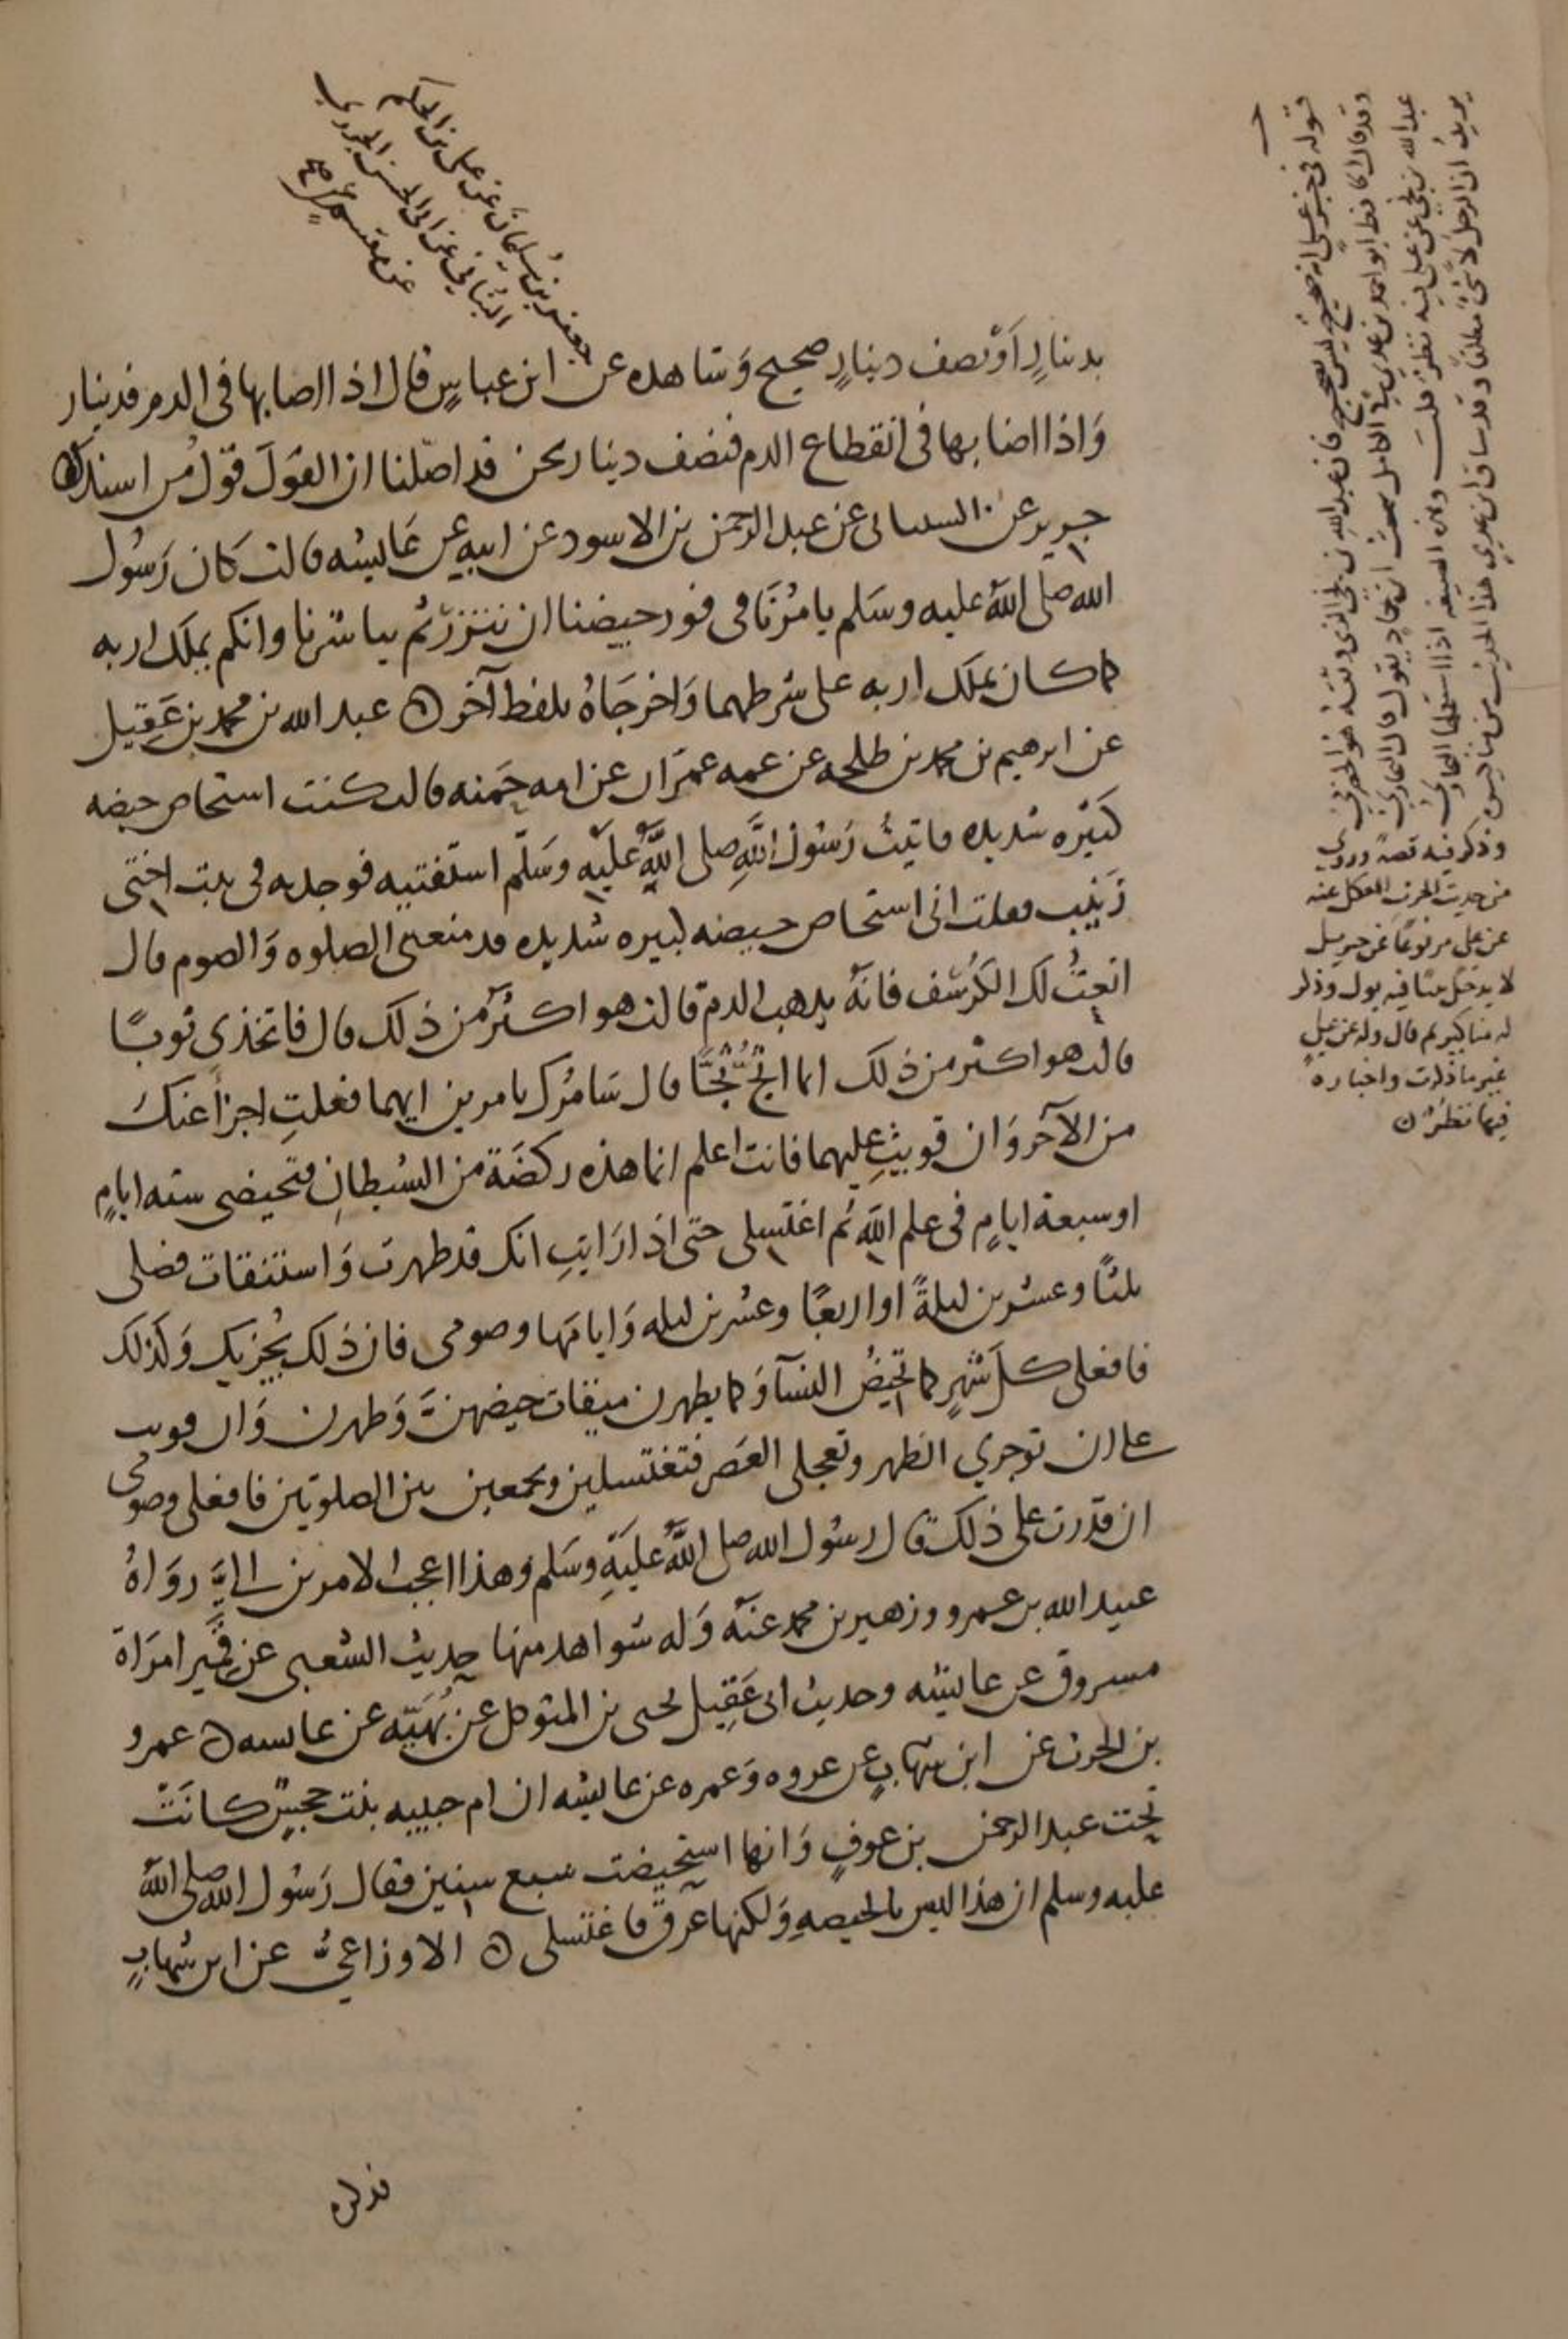 جعفر بن سليمان عن علي بن الحكم
البناني عن ابي الحسن الجزري
عن مقسم
بدينارٍ اَوْ نصف دينارٍ صحيح وَشاهده عن ابن عباسٍ قال اذا اصابها في الدم فدينار
وَاذا اصابها في انقطاع الدم فنصف دينار نحن قد اصّلنا ان القَولَ قوْلُ من اسند ه
جرير عن السىىانى عن عبد الرحمن بن الاسود عن ابيهِ عن عَائيشه قالت كَان رَسُول
الله صلى اللهُ عليه وسَلم يامُرُنَا في فور حيضنا ان نتزر ثم يباشرنا وانكم يملك اربه
كما كان يملك اربه على شرطهما وَاخرجَاهُ بلفظ آخر ه عبد الله بن محمد بن عَقِيل
عن ابرهيم بن محمد بن طلحه عن عمه عمرَان عن امه حَمنه قالت كنت استحاض حيضه
كَثيره شديده فاتيتُ رَسُولَ اللَّهِ صلى اللَّهُ عليْهِ وسَلّم استفتيه فوجدته في بيت اختي
زَيْنب فقلت اني استحاض حيضه كبيره شديده قد منعتني الصلوه وَالصوم قال
انعتُ لك الكُرْسُف فانهُ يذهب الدم قالت هو اكثر من ذلك قال فاتخذي ثوبًا
قالت هو اكثر من ذلك انما اثجّ ثجًّا قال سَامُرك بامرين ايهما فعلتِ اجزاَ عنك
من الآخر وَان قويتِ عليهما فانت اعلم انما هذه ركضَة من الشيطانِ فتحيضي سته ايامٍ
او سبعة ايامٍ في علم اللهِ ثم اغتسلي حتى اذا رَايتِ انك قد طهرت وَاستنقات فصلي
ثلثًا وعشرين ليلةً او اربعًا وعشرين ليله وَايامَها وصومي فان ذلك يُجزيك وَكذلك
فافعلي كلَ شهرٍ كما تحِيضُ النسآ وَكما يطهرن ميقات حيضهنَّ وَطهرن وَان قويت
على ان توخري الظهر وتعجلي العَصر فتغتسلين وتجمعين بين الصلوتين فافعلي وصومي
ان قدرت على ذلك قال رسُول الله صلى اللَّهُ عليَهِ وسَلم وهذا اعجب الامرين اليَّ روَاهُ
عبيد الله بن عمرو وزهير بن محمد عنهُ وَله شواهد منها حديث الشعبي عن قَمِير امرَاة
مسروق عن عائيشه وحديث ابي عَقِيل يحيى بن المتوكل عن بُهَيّه عن عائسه ه عمرو
بن الحرث عن ابن شهابٍ عن عروه وَعمره عن عائيشه ان ام حبيبه بنت جحشٍ كانَتْ
تحت عبد الرحمن بن عوفٍ وَانها استحيضت سبع سنين فقال رَسُول الله صلى اللهُ
عليه وسلم ان هذا ليس بالحيضهِ وَلكنها عرق فاغتسلي ه الاوزاعيُّ عن ابن شهابٍ
قوله في خبر علي انه صحيح ليس بصحيح فان عبد الله بن نجي الذي وثقه هو الحضرمي
وقد قال الحافظ ابو احمد بن عدي في الكامل سمعت ابن حماد يقول قال البخاري
عبد الله بن نجي عن علي فيه نظر قلت وهذه الصيغه اذا استعملها البخاري
يريد ان الرجل لا شئ مطلقا وقد ساق ابن عدي هذا الحديث من مناكيره
وذكر فيه قصة وروي
من حديث الحرث العكلي عنه
عن علي مرفوعًا عن جبريل
لا يدخل بيتًا فيه بول وذكر
له مناكير ثم قال وله عن علي
غير ما ذكرت واخباره
فيها نظر ه